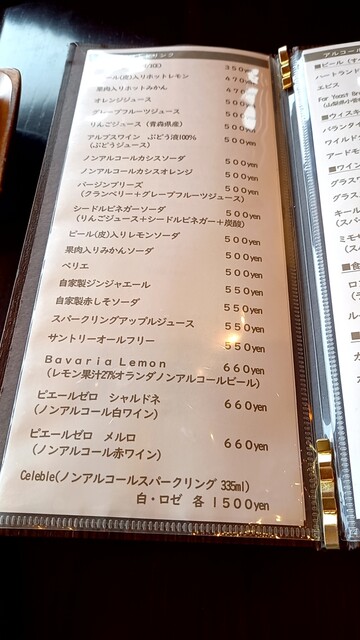 リンク
350yen
ール(皮)入りホットレモン 470yen
果肉入りホットみかん 470yen
オレンジジュース 500yen
グレープフルーツジュース 500yen
りんごジュース(青森県産) 500yen
アルプスワイン ぶどう液100% 500yen
(ぶどうジュース)
ノンアルコールカシスソーダ 500yen
ノンアルコールカシスオレンジ 500yen
バージンブリーズ 500yen
(クランベリー+グレープフルーツジュース)
シードルビネガーソーダ 500yen
(りんごジュース+シードルビネガー+炭酸)
ピール(皮)入りレモンソーダ 500yen
果肉入りみかんソーダ 500yen
ペリエ 500yen
自家製ジンジャエール 550yen
自家製赤しそソーダ 550yen
スパークリングアップルジュース 550yen
サントリーオールフリー 550yen
Bavaria Lemon 660yen
(レモン果汁27%オランダノンアルコールビール)
ピエールゼロ シャルドネ 660yen
(ノンアルコール白ワイン)
ピエールゼロ メルロ 660yen
(ノンアルコール赤ワイン)
Celeble(ノンアルコールスパークリング 335ml)
白・ロゼ 各 1500yen
アルコール
■ビール
ハートランド
エビス
Far Yeast
■ウィスキ
バランタイ
ワイルド
アードモ
■ワイン
グラスワ
グラス
キール
(スパ
ミモザ
(ス
■食